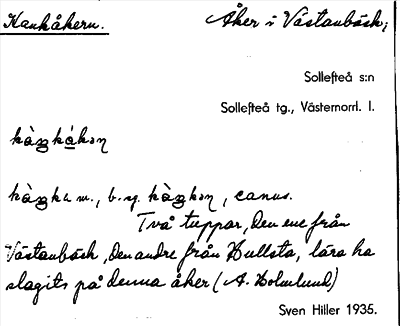 Kankåkern. Åker i Västanbäck;
Sollefteå s:n
Sollefteå tg., Västernorrl. l.
m., b. sg. , canus.
Två tuppar, den ene från
Västanbäck, den andre från Hullsta, lära ha
slagits på denna åker (A. Holmlund)
Sven Hiller 1935.